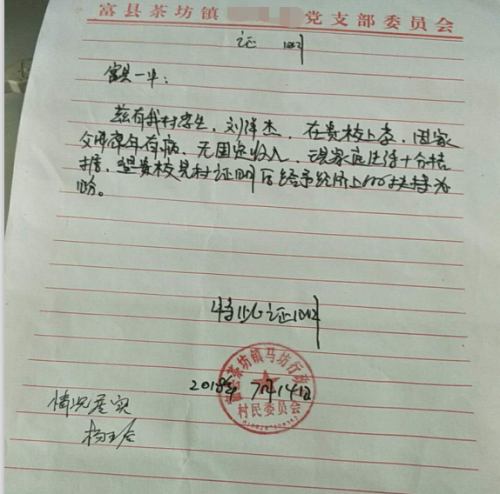 富县茶坊镇 党支部委员会
证 明
富县一中:
兹有我村学生,刘泽杰,在贵校上学,因家
父母常年有病,无固定收入,现家庭生活十分拮
据,望贵校见村证明后给予经济上的扶持为
盼。
特此证明
富县茶坊镇马坊行政
村民委员会
2018年7月14日
情况属实